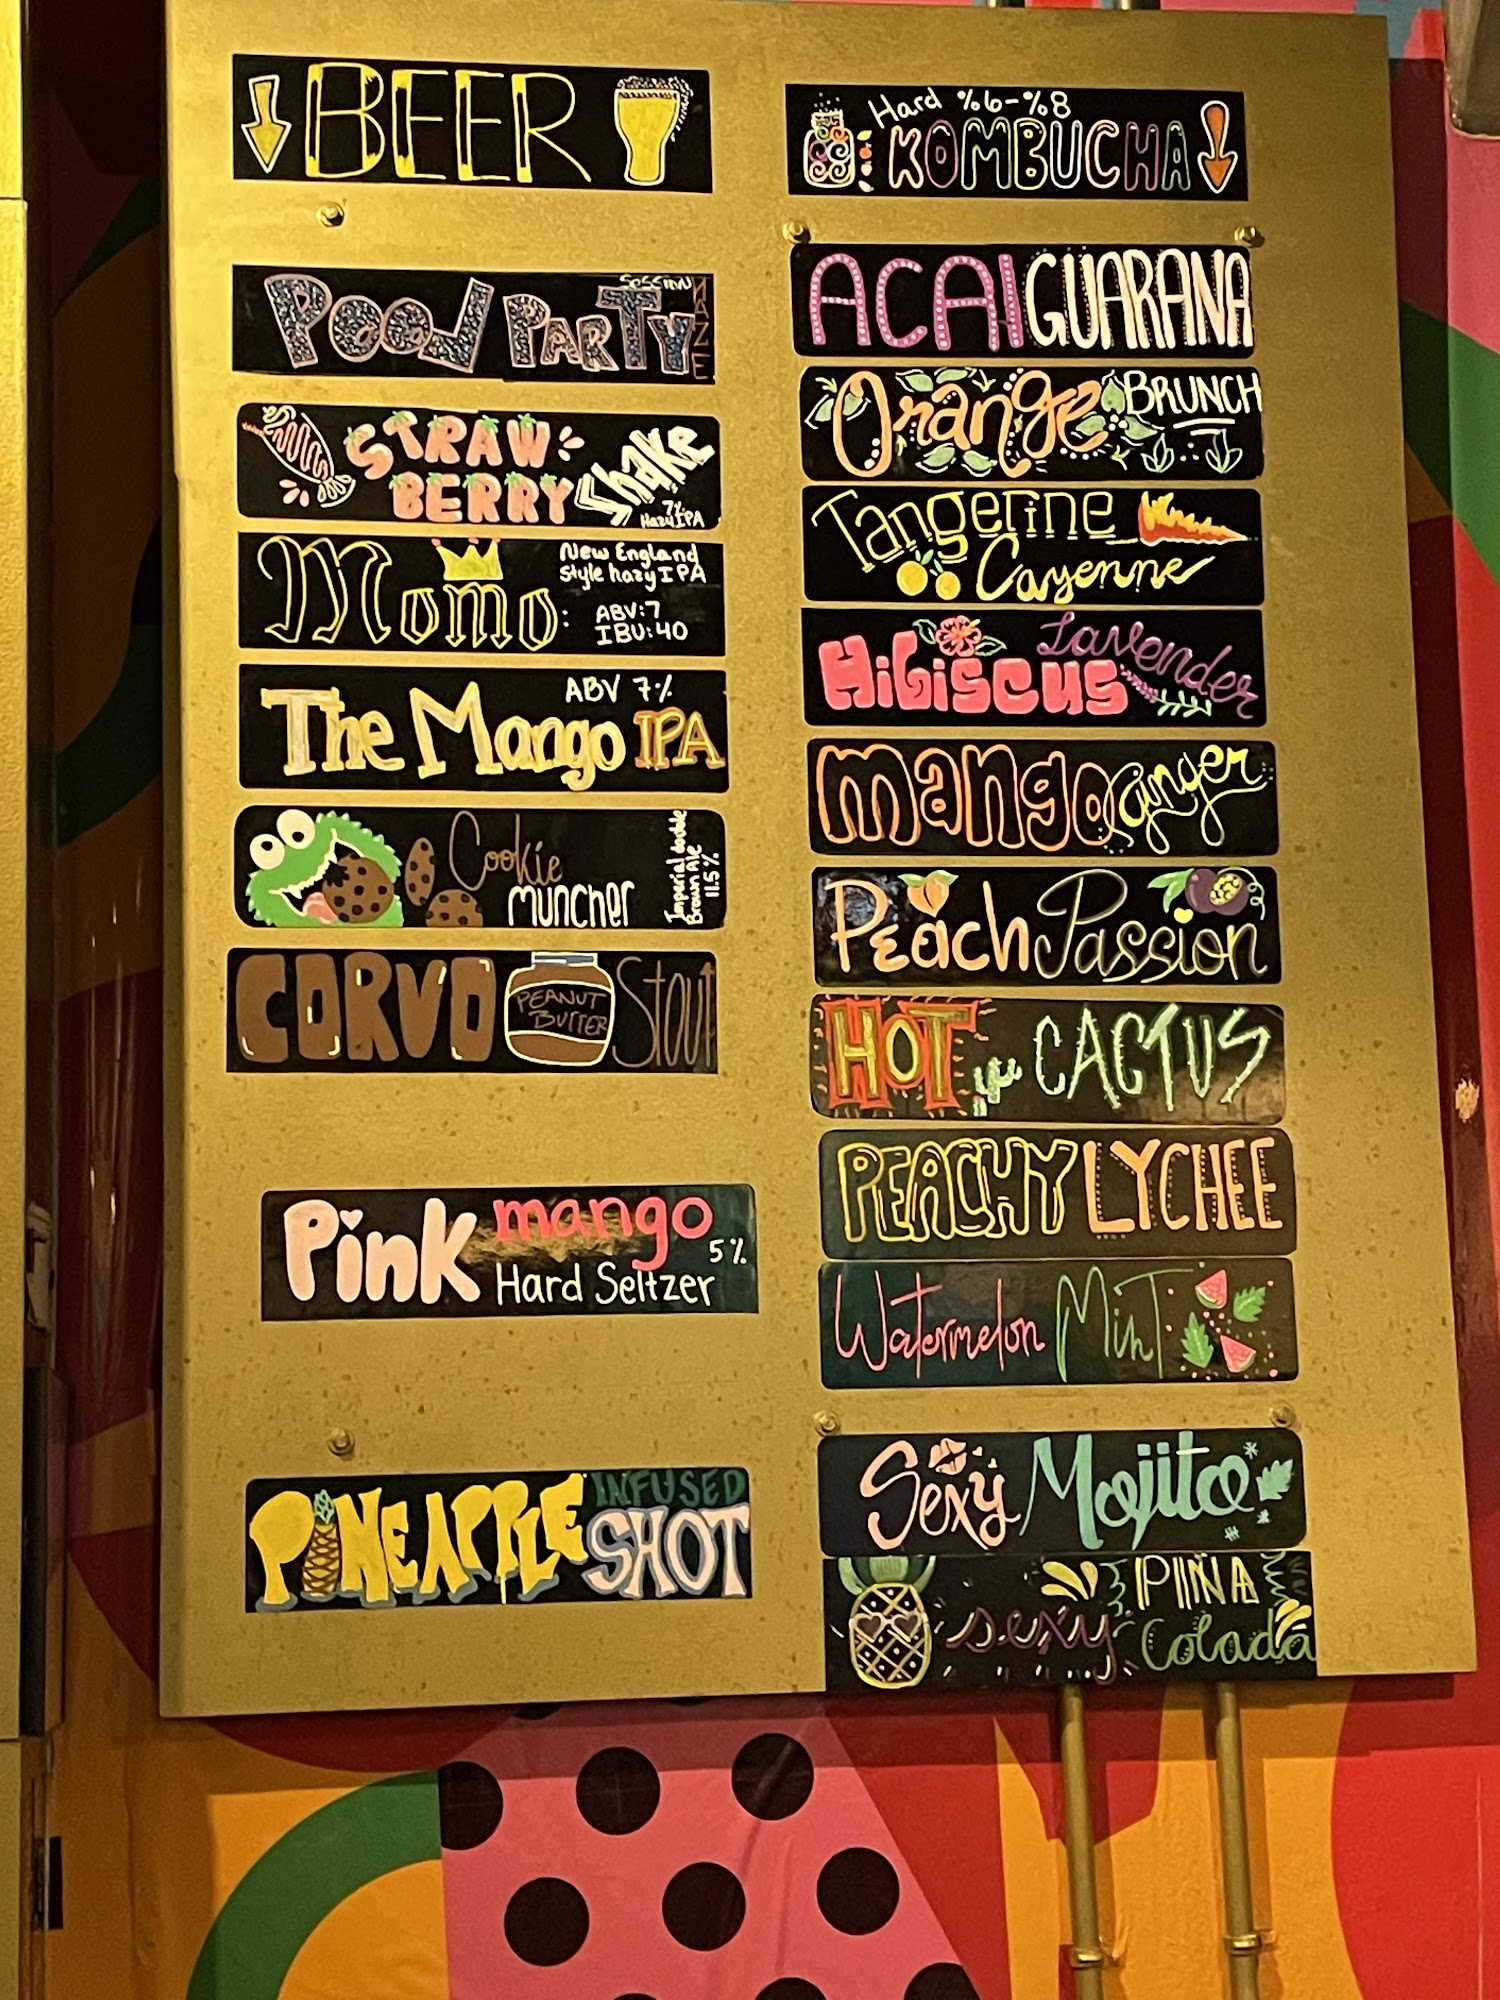 BEER
POOL PARTY SESSION HAZE
STRAW
BERRY Shake
7%
Hazy IPA
Momo:
New England
Style hazy IPA
ABV:7
IBU:40
ABV 7%
The Mango IPA
Cookie
muncher
Imperial double
Brown Ale
11.5%
CORVO PEANUT
BUTTER Stout
Pink mango
5%
Hard Seltzer
PINEAPPLE INFUSED
SHOT
Hard %6-%8
KOMBUCHA
ACAI GUARANA
Orange BRUNCH
Tangerine
Cayenne
Hibiscus Lavender
mango ginger
Peach Passion
HOT CACTUS
PEACHY LYCHEE
Watermelon MinT
Sexy Mojito
sexy PINA
Colada